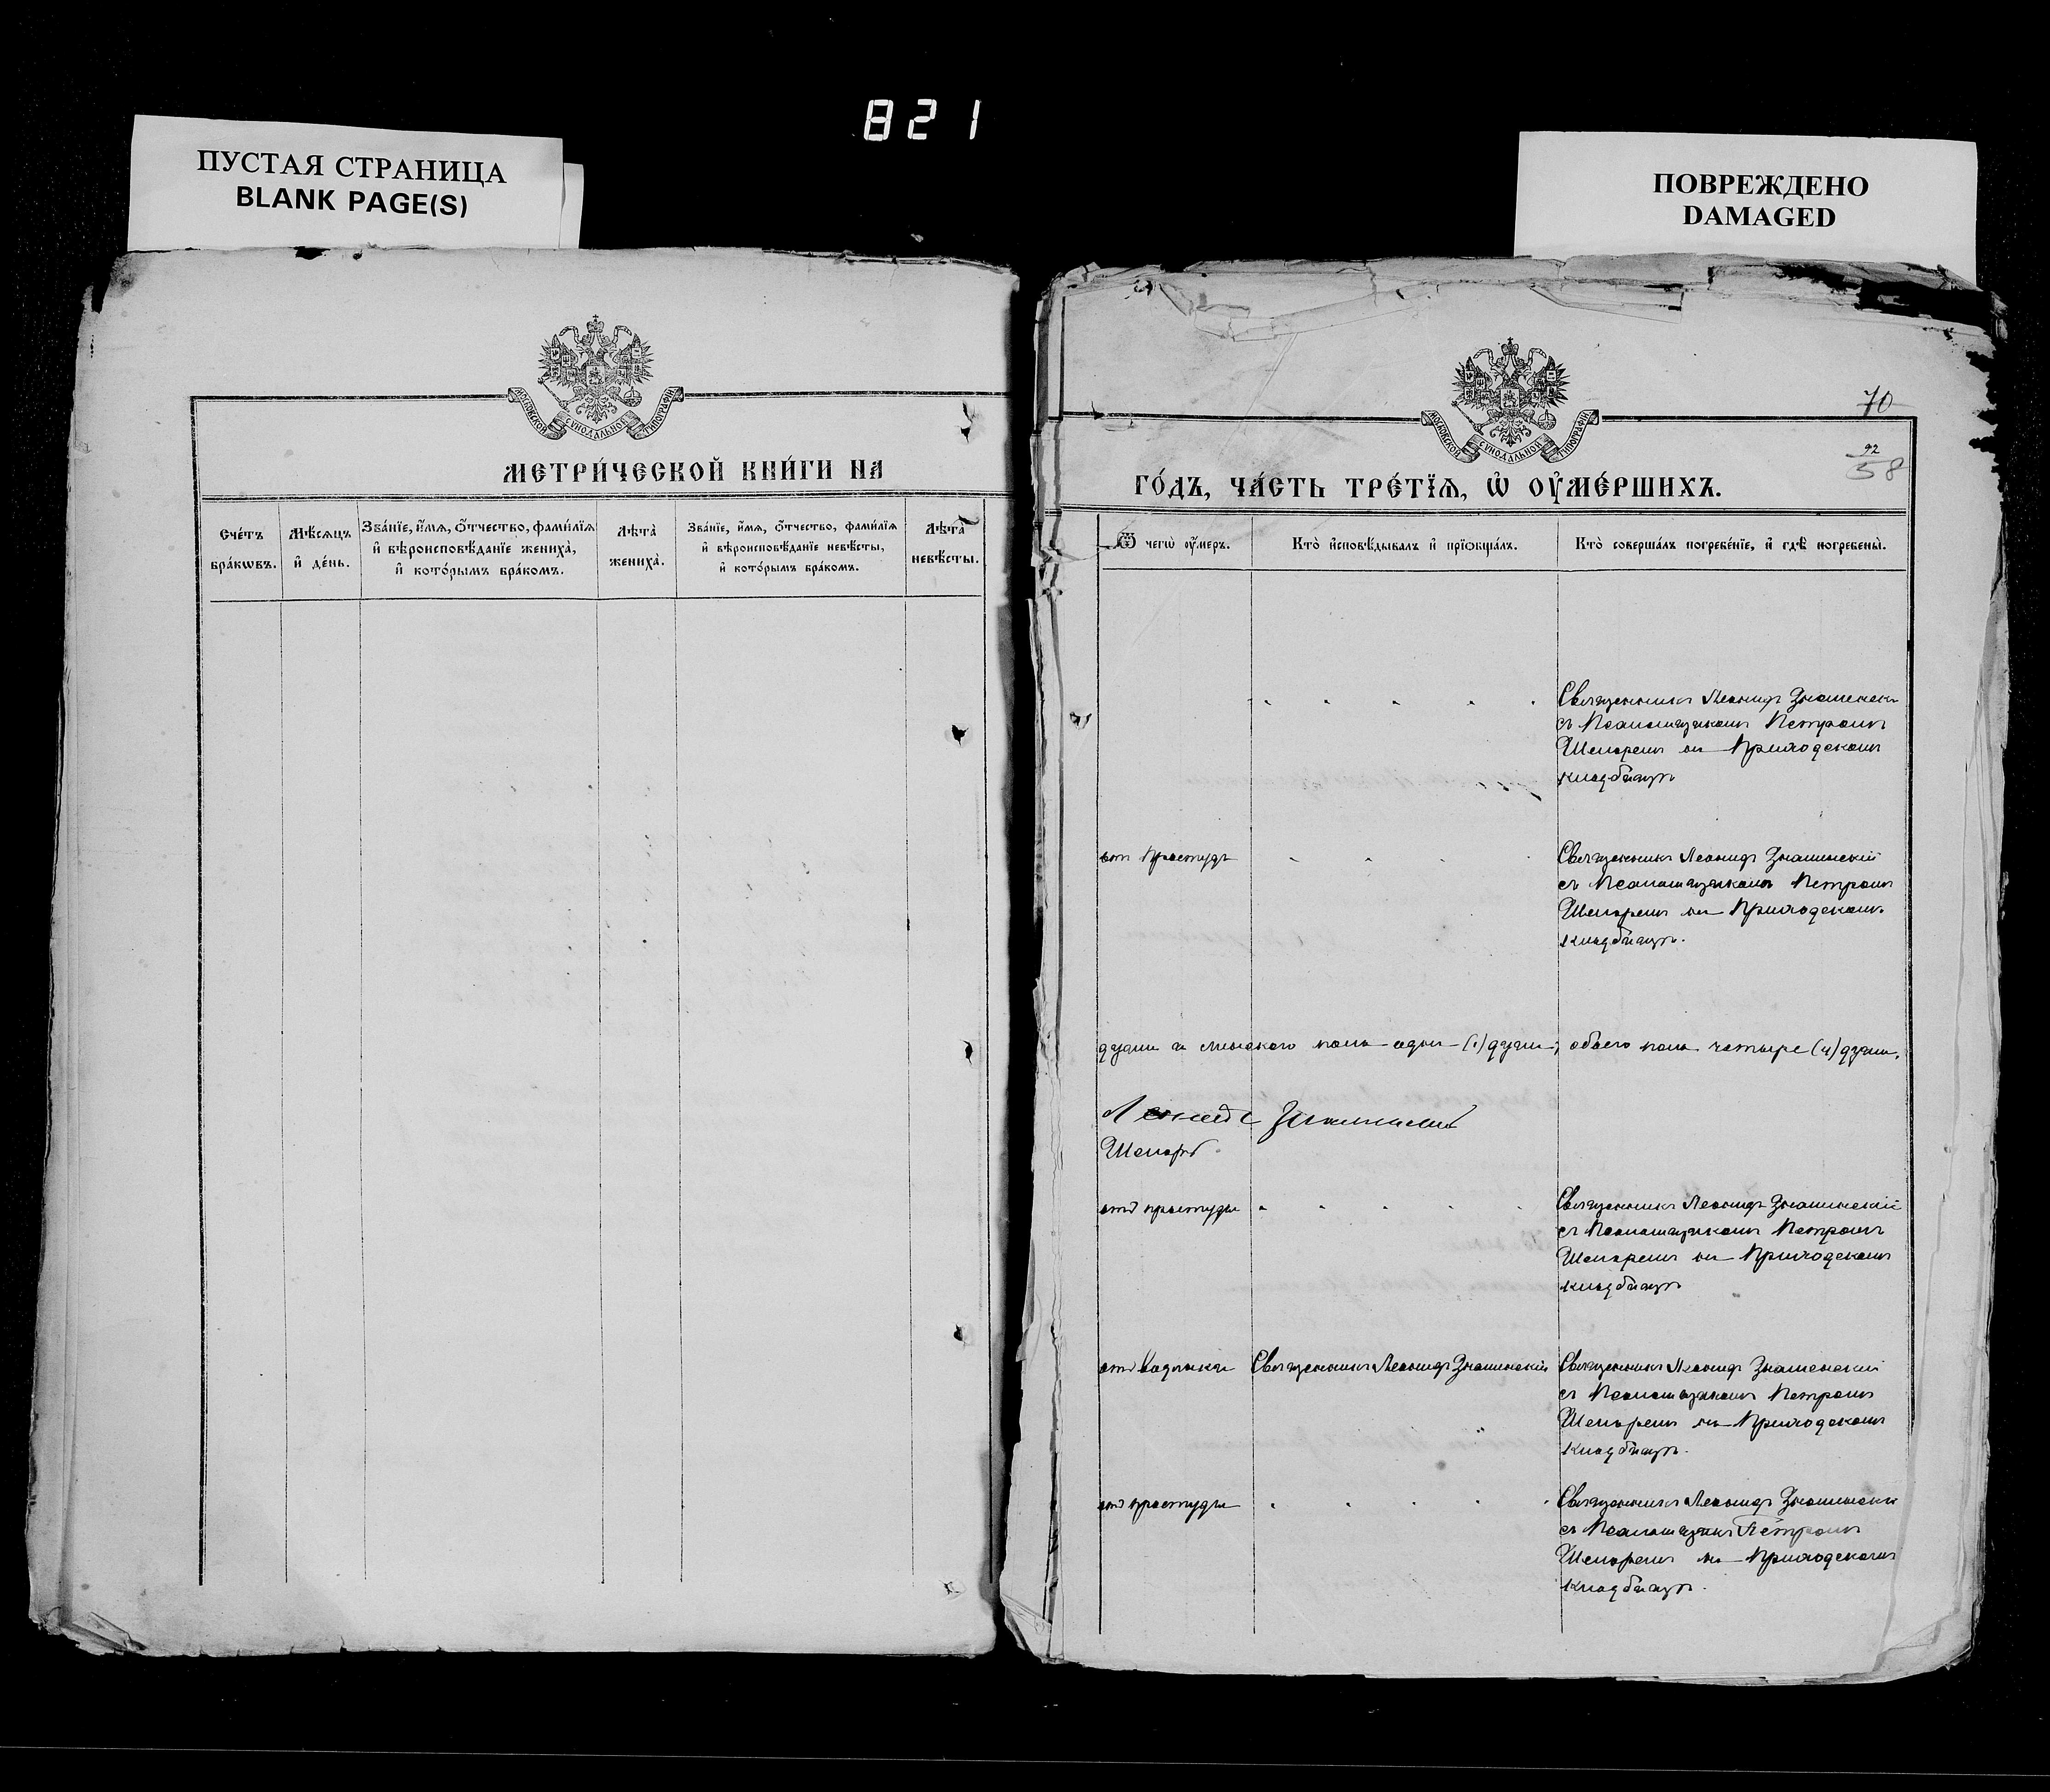 821
ПУСТАЯ СТРАНИЦА
BLANK PAGE(S)
ПОВРЕЖДЕНО
DAMAGED
МОСКОВСКОЙ СѴНОДАЛЬНОЙ ТИПОГРАФІИ
МЕТРИ́ЧЕСКОЙ КНИ́ГИ НА
Сче́тъ бра́кѡвъ.
Мѣ́сѧцъ и҆ де́нь.
Зва́нїе, и҆́мѧ, ѻ҆́тчество, фами́лїѧ
и҆ вѣроисповѣ́данїе жениха̀,
и҆ кото́рымъ бра́комъ.
Лѣта̀ жениха̀.
Зва́нїе, и҆́мѧ, ѻ҆́тчество, фами́лїѧ
и҆ вѣроисповѣ́данїе невѣ́сты,
и҆ кото́рымъ бра́комъ.
Лѣта̀ невѣ́сты.
70
МОСКОВСКОЙ СѴНОДАЛЬНОЙ ТИПОГРАФІИ
92
58
ГО́ДЪ, ЧА́СТЬ ТРЕ́ТЇѦ, Ѡ҆ ОУ҆МЕ́РШИХЪ.
Ѿ чегѡ̀ оу҆́меръ.
Кто̀ и҆сповѣ́дывалъ и҆ прїѡбща́лъ.
Кто̀ соверша́лъ погребе́нїе, и҆ гдѣ̀ погребены̀.
Священникъ Леонидъ Знаменскі
съ Псаломщикомъ Петромъ
Шепоремъ на Приходскомъ
кладбищѣ
отъ простуды
Священникъ Леонидъ Знаменскій
съ Псаломщикомъ Петромъ
Шепоремъ на Приходскомъ
кладбищѣ.
души и женскаго пола одна (1) душа, обоего пола четыре (4) души.
Леонидъ Знаменскій
Шепоръ
отъ простуды
Священникъ Леонидъ Знаменскій
съ Псаломщикомъ Петромъ
Шепоремъ на Приходскомъ
кладбищѣ
отъ водянки Священникъ Леонидъ Знаменскій Священникъ Леонидъ Знаменскій
съ Псаломщикомъ Петромъ
Шепоремъ на Приходскомъ
кладбищѣ.
отъ простуды
Священникъ Леонидъ Знаменскі
съ Псаломщикомъ Петромъ
Шепоремъ на Приходскомъ
кладбищѣ.